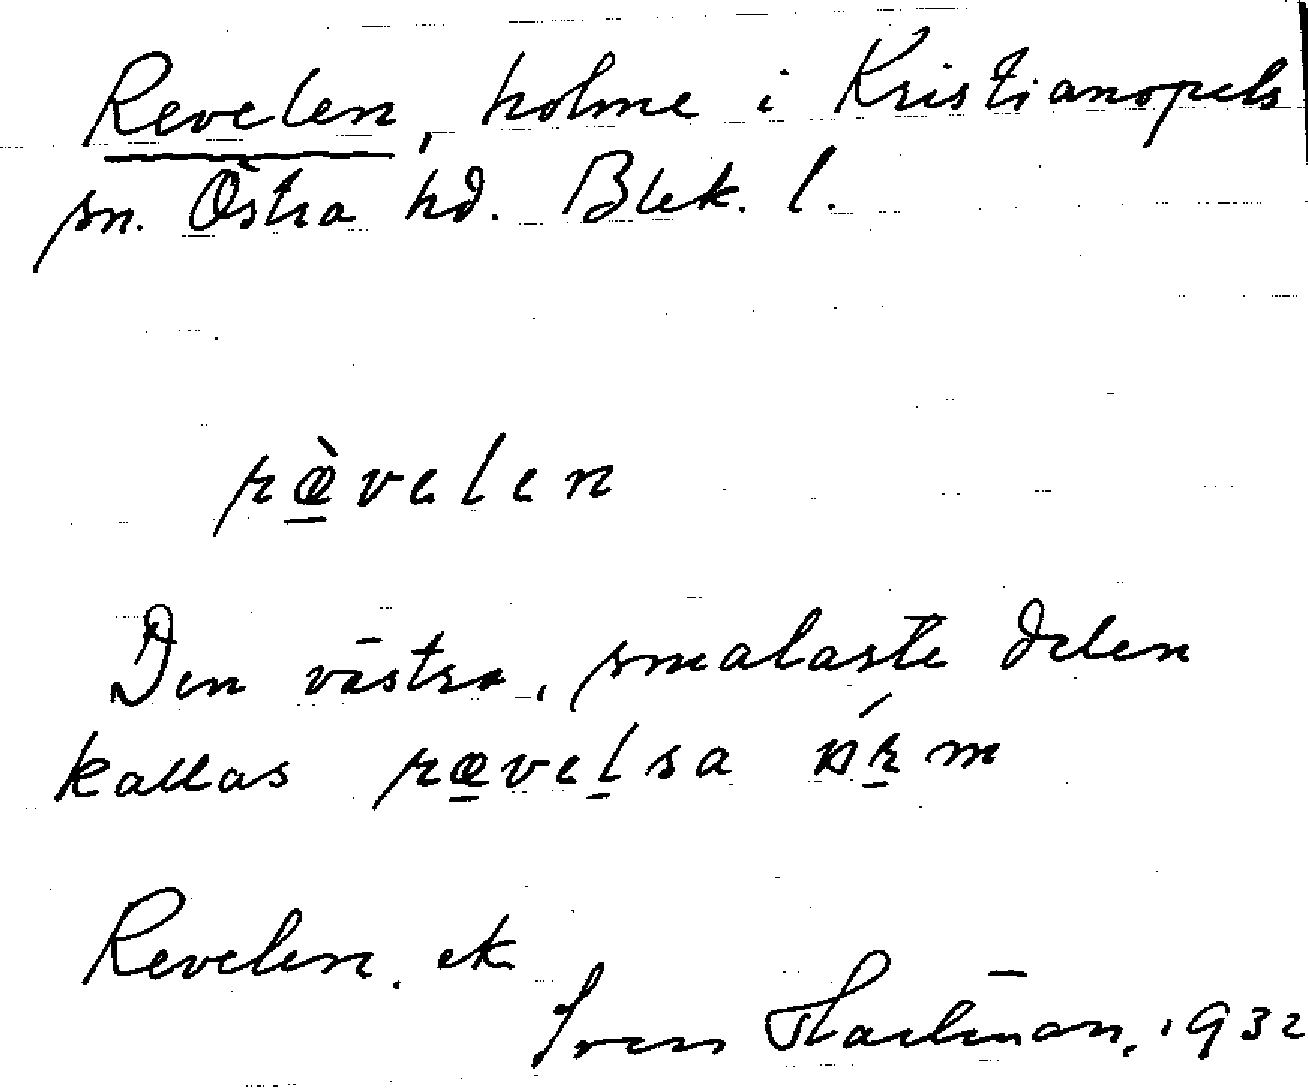 Revelen, holme i Kristianopels
sn. Östra hd. Blek. l.
ræ̀velen
Den västra, smalaste delen
kallas rævelsa
Revelen. ek
Sven Hartman, 1932